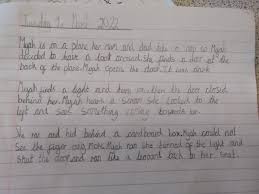 Tuesday 1st March 2022
Myah is on a plane her mum and dad take a nap so Myah
decided to have a look around. She finds a door at the
back of the plane. Myah opens the door. It was dark.
Myah finds a light and turns on then the door closed
behind her. Myah hears a scream she looked to the
left and sees something coming towards her.
She ran and hid behind a cardboard box. Myah could not
see the figer any more. Myah ran she turned of the light and
shut the door and ran like a leopard back to her seat.